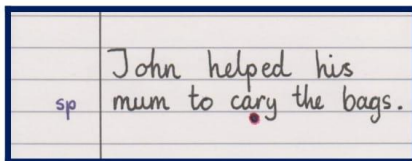 John helped his
sp mum to cary the bags.